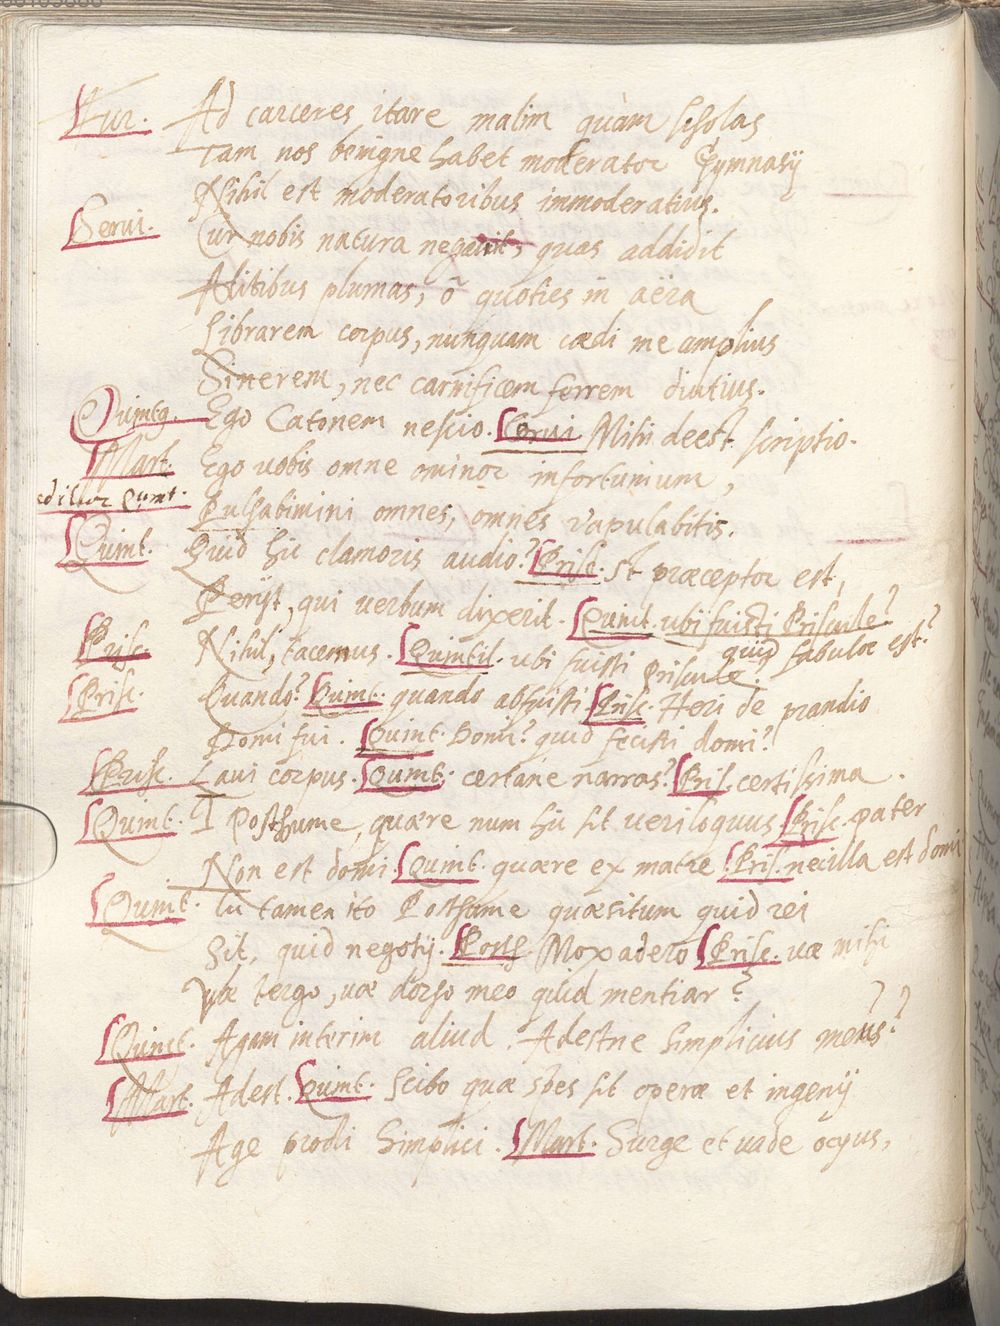 Fur. Ad carceres itare malim quàm scholas
Tam nos benigne habet moderator Gymnasij
Nihil est moderatoribus immoderatius.
Servi. Cur nobis natura negavit, quas addidit
Alitibus plumas, ô quoties in aëra
Librarem corpus, nunquam cædi me amplius
Sinerem, nec carnificem ferrem diutius.
Quintg. Ego Catonem nescio. Servi Mihi deest scriptio.
Mart. Ego vobis omne ominor infortunium,
Quint.
Pulsabimini omnes, omnes vapulabitis.
Quint. Quid hic clamoris audio? Prisc. st præceptor est,
Perijt, qui verbum dixerit. Quint. ubi fuisti Priscule?
quid fabulæ est?
Prisc. Nihil, tacemus. Quintil. ubi fuisti Priscule?
Prisc. Quando? Quint. quando abfuisti Prisc. Heri de prandio
Domi fui. Quint. Domi? quid fecisti domi?
Prisc. Lavi corpus. Quint. certane narras? Pris. certissima.
Quint. I Posthume, quære num hic sit veriloquus Prisc. pater
Non est domi. Quint. quære ex matre Pris. nec illa est domi
Quint. Tu tamen ito Posthume quæsitum quid rei
Sit, quid negotij. Posth. Mox adero Prisc. væ mihi
Væ tergo, væ dorso meo quid mentiar?
Quint. Agam interim aliud. Adestne Simplicius meus?
Mart. Adest. Quint. Scibo quæ spes sit operæ et ingenij
Age prodi Simplici. Mart. Surge et vade ocyus,